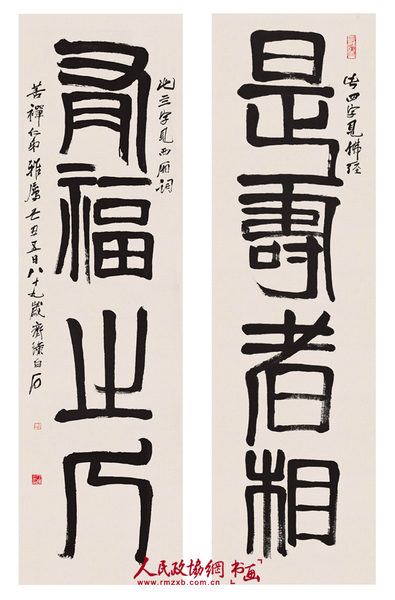 是壽者相
此四字見佛經
此三字見西廂詞
有福之人
苦禪仁弟雅屬 己丑五日八十九歲齊璜白石
人民政協網 书画
www.rmzxb.com.cn